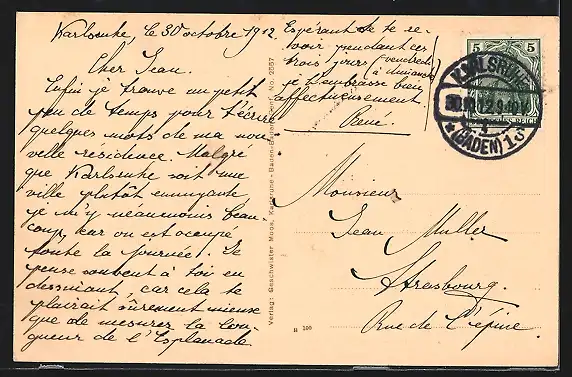 Karlsruhe, le 30 octobre 1912
Cher Jean.
Enfin je trouve un petit
peu de temps pour t'écrire
quelques mots de ma nou-
velle résidence. Malgré
que Karlsruhe soit une
ville plutôt ennuyante
je m'y néanmoins beau-
coup, car on est occupé
toute la journée. Je
pense souvent à toi en
dessinant, car cela te
plairait sûrement mieux
que de mesurer la lon-
gueur de l'Esplanade
Espérant de te re-
voir pendant ces
trois jours (vendredi
à dimanche)
je t'embrasse bien
affectueusement
René.
Verlag: Geschwister Moos, Karlsruhe - Baden-Baden No. 2557
B 100
5 5
DEUTSCHES REICH
KARLSRUHE
30.10.12.9-10V
(BADEN) 1
Monsieur
Jean Muller
Strasbourg.
Rue de l'Epine.